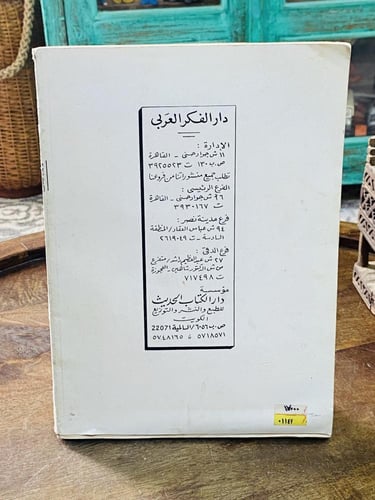 دار الفكر العربى
الإدارة :
١١ ش جواد حسنى - القاهرة
ص.ب ١٣٠ ت ٣٩٢٥٥٢٣
تطلب جميع منشوراتنا من فروعنا
الفرع الرئيسى :
٩٦ ش جواد حسنى - القاهرة
ت ٣٩٣٠١٦٧
فرع مدينة نصر :
٩٤ ش عباس العقاد / المنطقة
السادسة - ت ٢٦١٩٠٤٩
فرع الدقى :
٢٧ ش عبد العظيم راشد / متفرع
من ش الدكتور شاهين - العجوزة
ت ٧١٧٤٩٨
مؤسسة
دار الكتاب الحديث
للطبع والنشر والتوزيع
الكويت
ص.ب ٦٠٥٦ / السالمية 22071
٥٧٤٨١٦٥ ٥٧١٨٥٧١